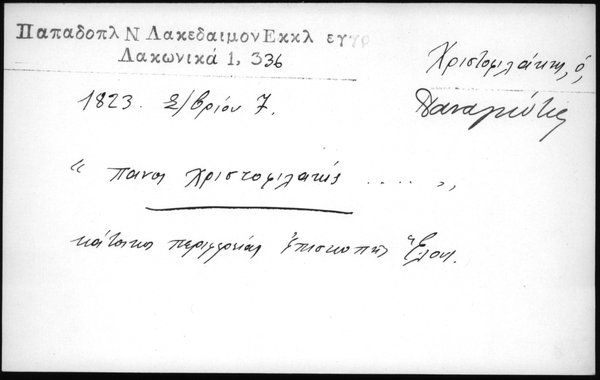 Παπαδοπλ Ν Λακεδαιμον Εκκλ εγγρ
Λακωνικά 1, 336
Χριστοφιλάκης, ὁ,
Παναγιώτης
1823. Σ/βρίου 7.
“ πανος χριστοφιλακής ..... „
κάτοικος περιφερείας Ἐπισκοπῆς Ἕλους.